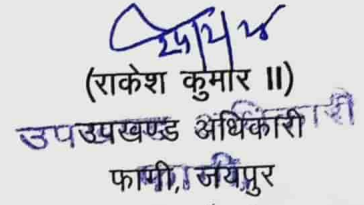 (राकेश कुमार II)
उपखण्ड अधिकारी
फागी, जयपुर